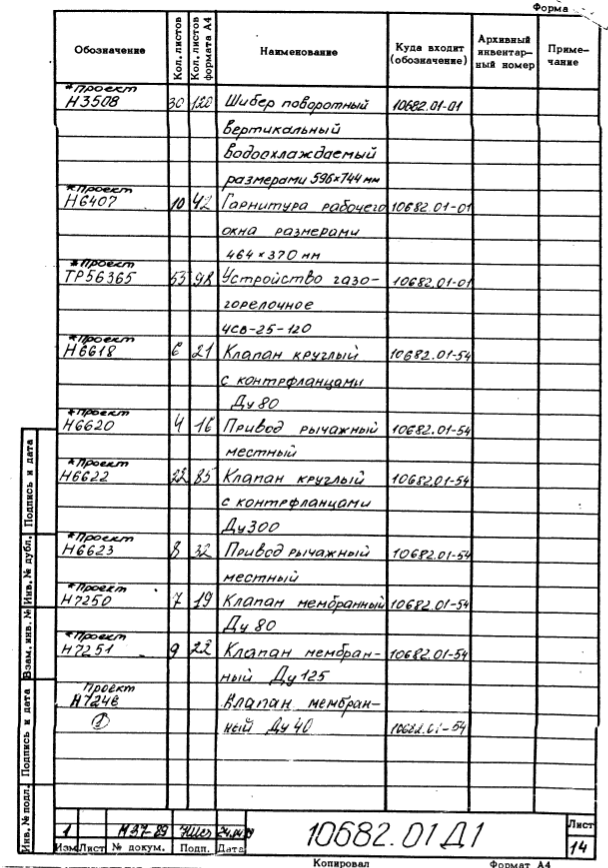 Форма
Обозначение Кол. листов Кол. листов формата А4 Наименование Куда входит (обозначение) Архивный инвентар-ный номер Приме-чание
*Проект
Н3508 30 120 Шибер поворотный 10682.01-01
вертикальный
водоохлаждаемый
размерами 596×744 мм
*Проект
Н6407 10 42 Гарнитура рабочего 10682.01-01
окна размерами
464×370 мм
*Проект
ТР56365 53 98 Устройство газо- 10682.01-01
горелочное
ЧСВ-25-120
*Проект
Н6618 6 21 Клапан круглый 10682.01-54
с контрфланцами
Ду 80
*Проект
Н6620 4 16 Привод рычажный 10682.01-54
местный
*Проект
Н6622 22 85 Клапан круглый 10682.01-54
с контрфланцами
Ду300
*Проект
Н6623 8 32 Привод рычажный 10682.01-54
местный
*Проект
Н7250 7 19 Клапан мембранный 10682.01-54
Ду 80
*Проект
Н7251 9 22 Клапан мембран- 10682.01-54
ный Ду 125
Проект
Н7248 Клапан мембран-
① ный Ду 40 10682.01-54
Инв. № подл. Подпись и дата Взам. инв. № Инв. № дубл. Подпись и дата
1 М37-89 24.04
Изм Лист № докум. Подп. Дата
10682.01Д1
Лист
14
Копировал Формат А4